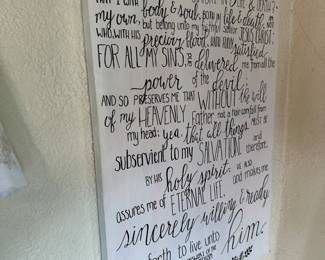 my own, but belong unto my faithful savior JESUS CHRIST;
who, with his precious blood, hath fully satisfied
FOR ALL MY SINS, and delivered me from all the
power of the devil;
AND SO PRESERVES ME THAT WITHOUT the will
of my HEAVENLY Father not a hair can fall from
my head; yea, that all things MUST BE
subservient to my SALVATION and therefore,
BY HIS holy spirit, HE ALSO
assures me of ETERNAL LIFE, and makes me
sincerely willing & ready,
forth to live unto him.